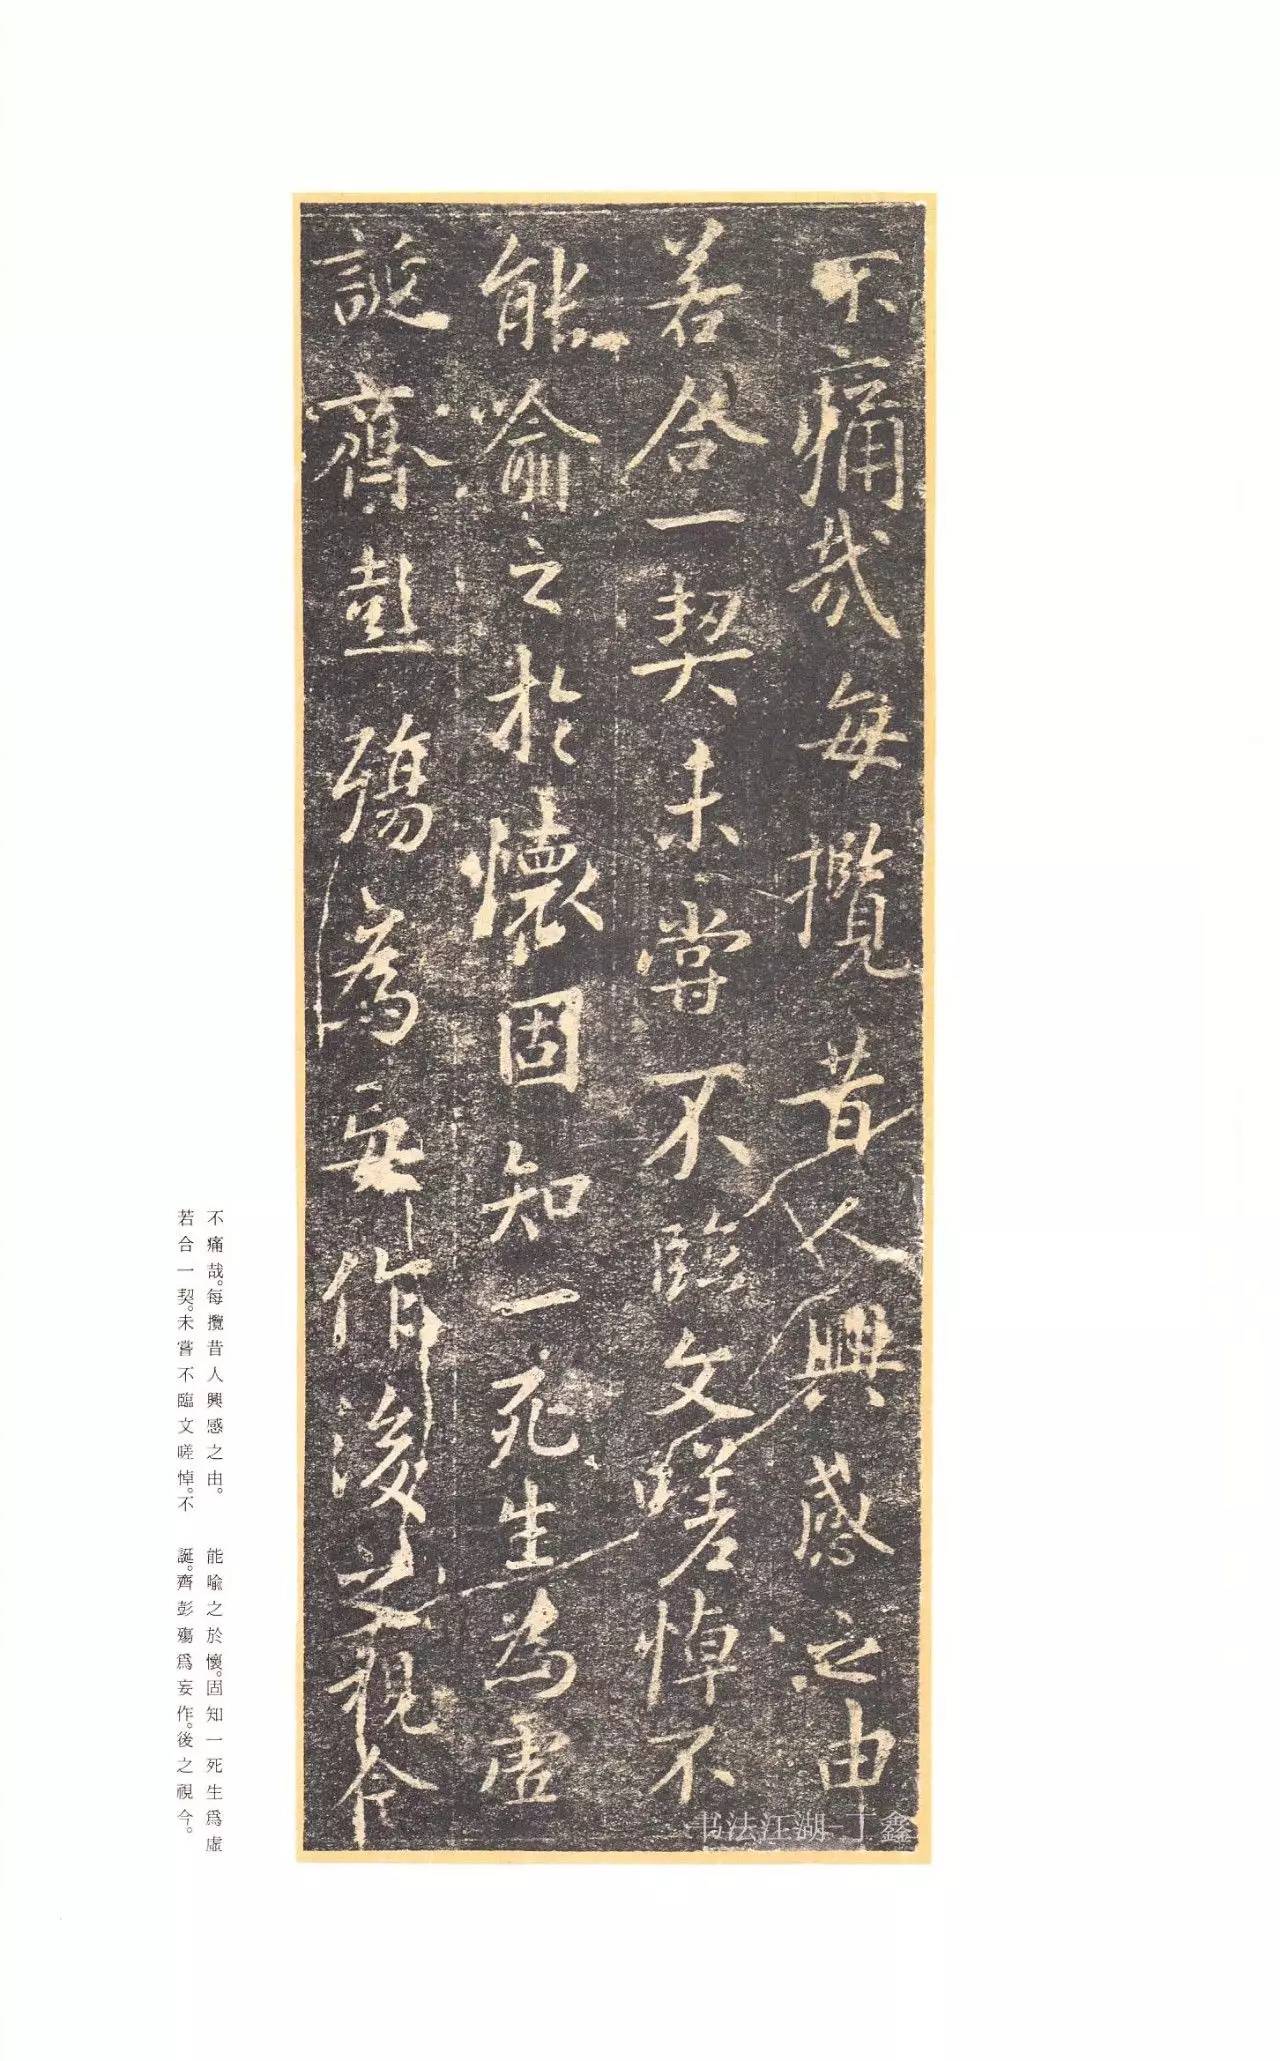 不痛哉每攬昔人興感之由
若合一契未嘗不臨文嗟悼不
能喻之於懷固知一死生為虛
誕齊彭殤為妄作後之視今
不痛哉。每攬昔人興感之由。
若合一契。未嘗不臨文嗟悼。不
能喻之於懷。固知一死生爲虛
誕。齊彭殤爲妄作。後之視今。
书法江湖-丁鑫